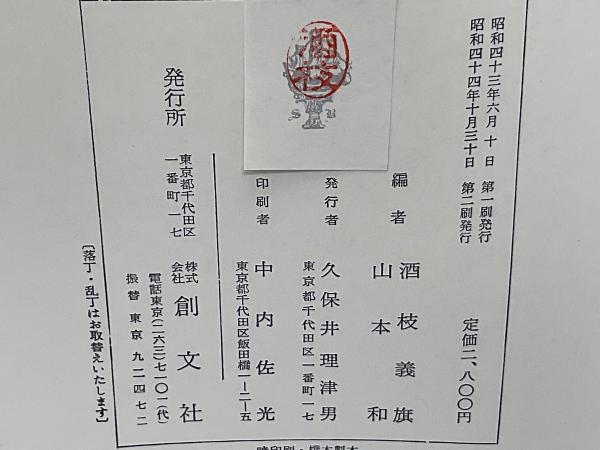 昭和四十三年六月十日 第一刷発行
昭和四十四年十月三十日 第二刷発行
定価二、八〇〇円
編者 酒枝義旗
山本和
発行者 久保井理津男
東京都千代田区一番町一七
印刷者 中内佐光
東京都千代田区飯田橋一-二-五
発行所
東京都千代田区
一番町一七
株式会社 創文社
電話東京(二六三)七一〇一(代)
振替東京九二四七二
〔落丁・乱丁はお取替えいたします〕
酒枝
S B